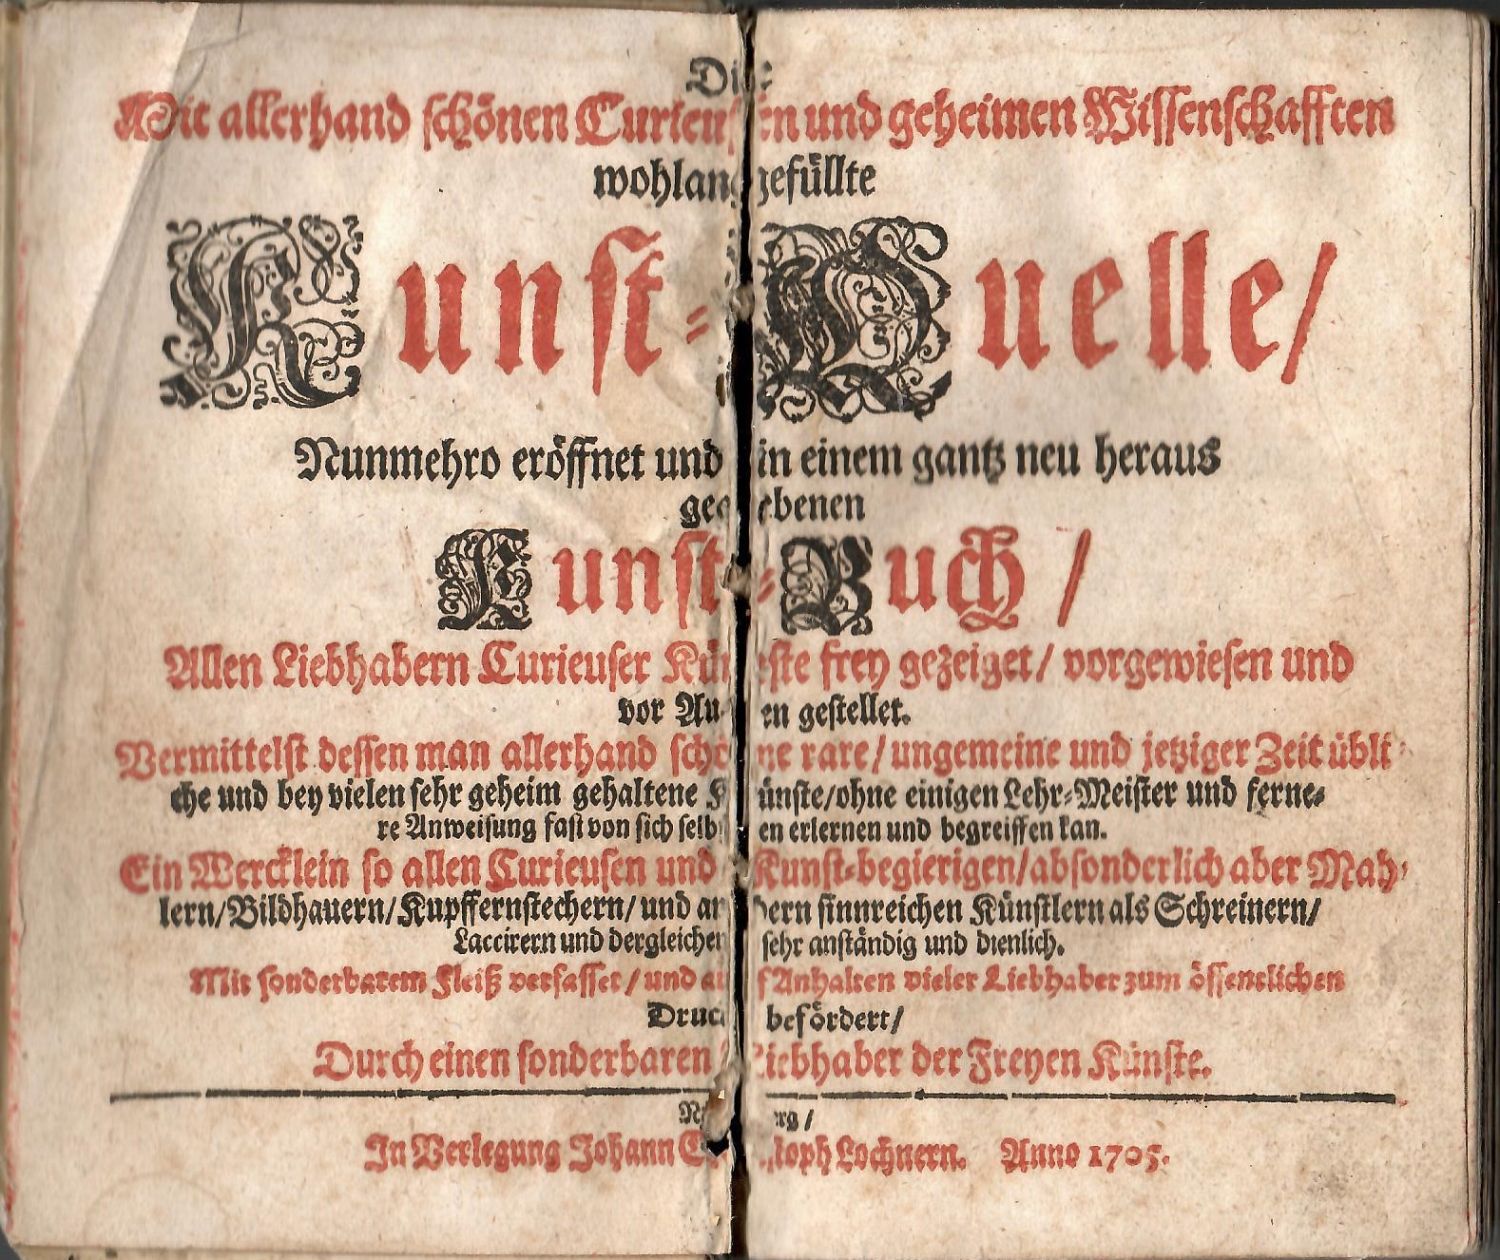 Die
Mit allerhand schönen Curieusen und geheimen Wissenschafften
wohlangefüllte
Kunst-Quelle/
Nunmehro eröffnet und in einem gantz neu heraus
gegebenen
Kunst-Buch /
Allen Liebhabern Curieuser Künste frey gezeiget/ vorgewiesen und
vor Augen gestellet.
Vermittelst dessen man allerhand schöne rare/ ungemeine und jetziger Zeit übli-
che und bey vielen sehr geheim gehaltene Künste/ohne einigen Lehr-Meister und ferne-
re Anweisung fast von sich selbsten erlernen und begreiffen kan.
Ein Wercklein so allen Curieusen und Kunst-begierigen/absonderlich aber Mah-
lern/Bildhauern/Kupffernstechern/ und andern sinnreichen Künstlern als Schreinern/
Laccirern und dergleichen sehr anständig und dienlich.
Mit sonderbarem Fleiß verfasset/ und auf Anhalten vieler Liebhaber zum öffentlichen
Druck befördert/
Durch einen sonderbaren Liebhaber der Freyen Künste.
Nürnberg/
In Verlegung Johann Christoph Lochnern. Anno 1705.